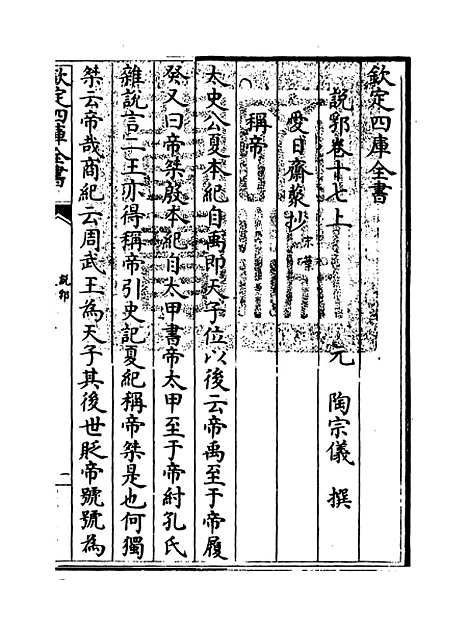 欽定四庫全書
說郛卷十七上
元 陶宗儀 撰
愛日齋藂抄 宋 葉
稱帝
太史公夏本紀自禹即天子位以後云帝禹至于帝履
癸又曰帝桀殷本紀自太甲書帝太甲至于帝紂孔氏
雜說言二王亦得稱帝引史記夏紀稱帝桀是也何獨
桀云帝哉商紀云周武王為天子其後世貶帝號號為
欽定四庫全書
說郛